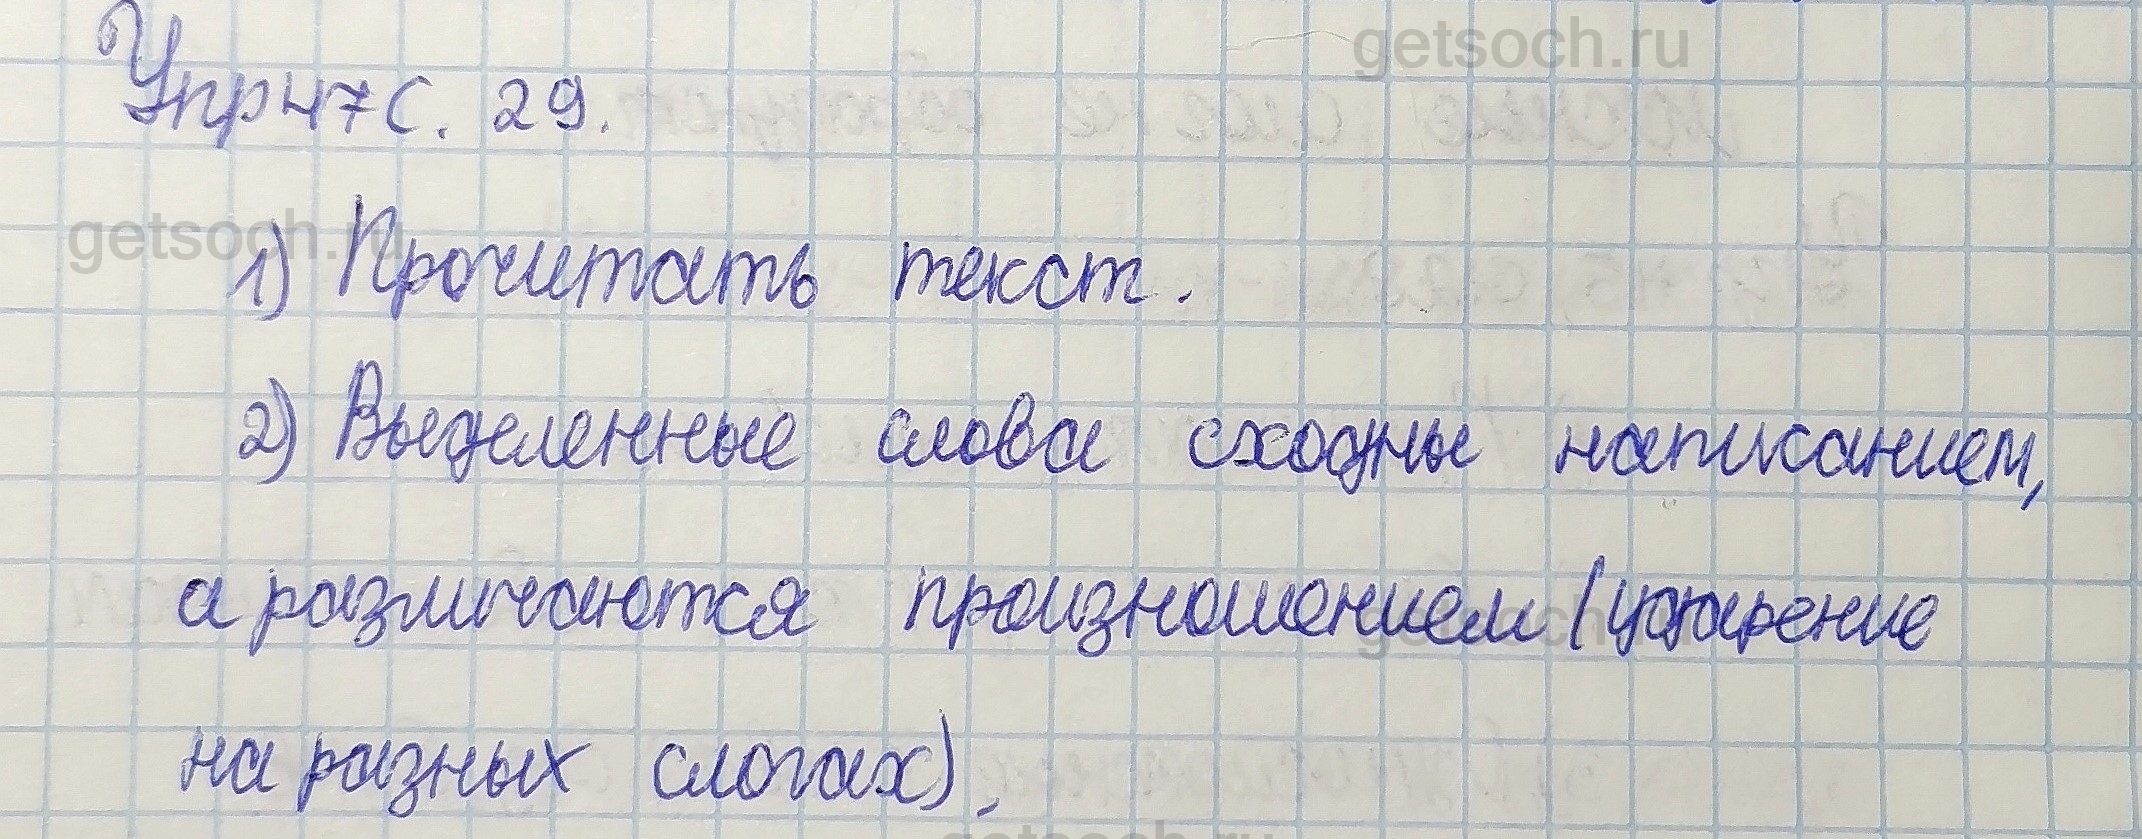 getsoch.ru
Упр 47 с. 29.
getsoch.ru
1) Прочитать текст.
2) Выделенные слова сходны написанием,
а различаются произношением (ударение
getsoch.ru
на разных слогах).
getsoch.ru